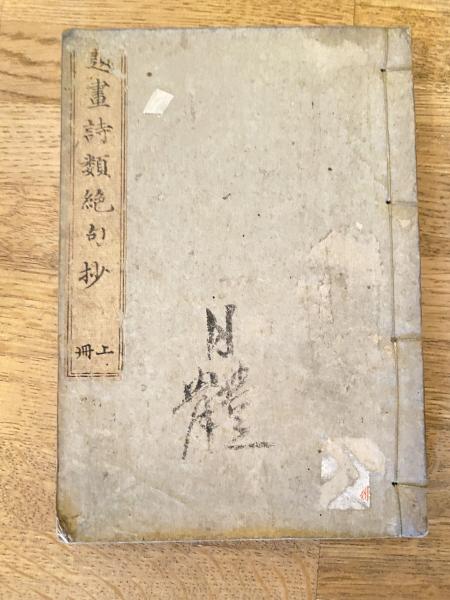 題畫詩類絶句抄
上冊
月
體